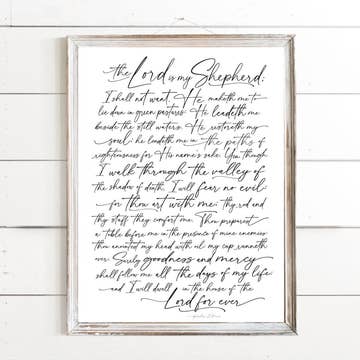 the Lord is my Shepherd;
I shall not want. He maketh me to
lie down in green pastures: He leadeth me
beside the still waters. He restoreth my
soul: he leadeth me in the paths of
righteousness for His name's sake. Yea, though
I walk through the valley of
the shadow of death, I will fear no evil:
for thou art with me; thy rod and
thy staff they comfort me. Thou preparest
a table before me in the presence of mine enemies:
thou anointest my head with oil; my cup runneth
over. Surely goodness and mercy
shall follow me all the days of my life:
and I will dwell in the house of the
Lord for ever.